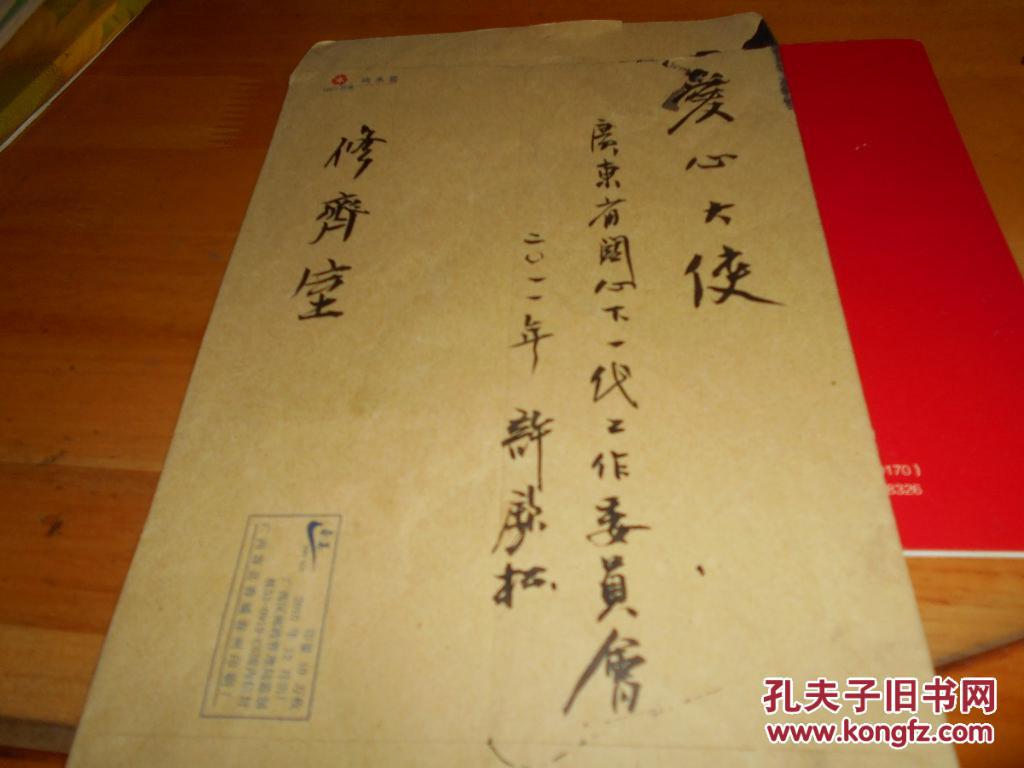 愛心大使
廣東省関心下一代工作委員會
二〇一一年 許欽松
修齊堂
0170)
8326
孔夫子旧书网
www.kongfz.com